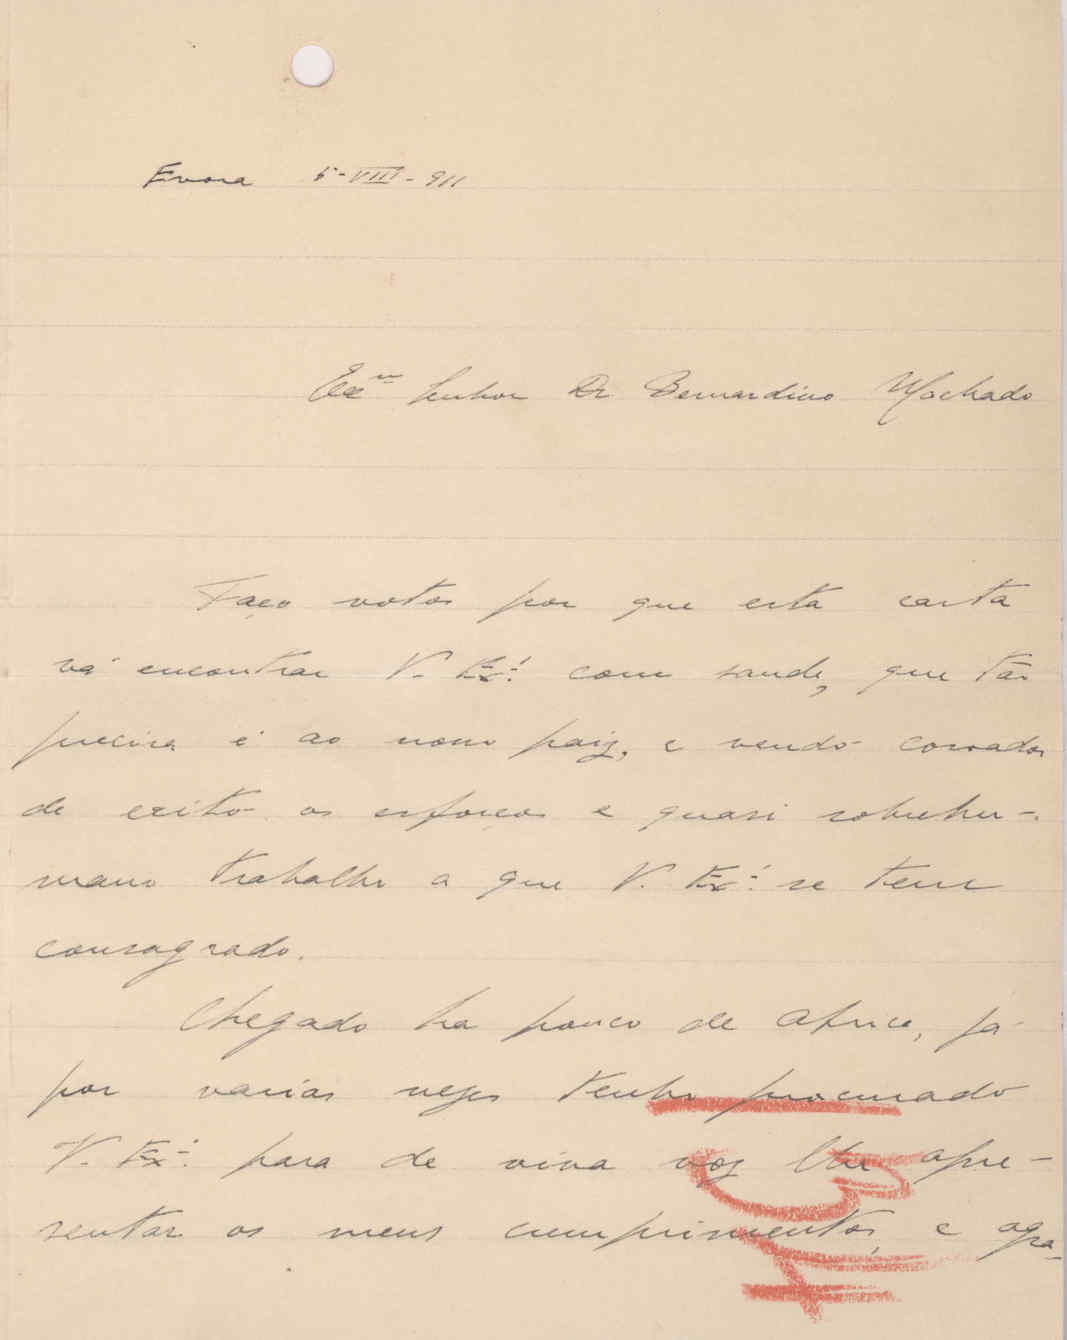 Evora 5-VIII-911
Exmo Senhor Dr Bernardino Machado
Faço votos por que esta carta
vá encontrar V. Exª. com saude, que tão
precisa é ao nosso paiz, e vendo coroados
de exito os esforços e quasi sobrehu-
mano trabalho a que V. Exª. se tem
consagrado.
Chegado ha pouco de Africa, já
por varias vezes tenho procurado
V. Exª. para de viva voz lhe apre-
sentar os meus cumprimentos, e agra-